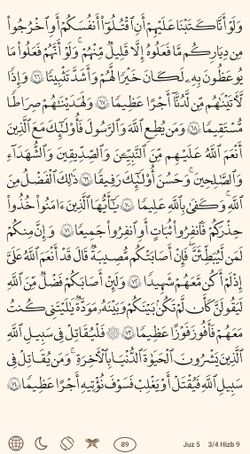 وَلَوْ أَنَّا كَتَبْنَا عَلَيْهِمْ أَنِ ٱقْتُلُوٓا۟ أَنفُسَكُمْ أَوِ ٱخْرُجُوا۟
مِن دِيَـٰرِكُم مَّا فَعَلُوهُ إِلَّا قَلِيلٌ مِّنْهُمْ ۖ وَلَوْ أَنَّهُمْ فَعَلُوا۟ مَا
يُوعَظُونَ بِهِۦ لَكَانَ خَيْرًا لَّهُمْ وَأَشَدَّ تَثْبِيتًا ٦٦ وَإِذًا
لَّـَٔاتَيْنَـٰهُم مِّن لَّدُنَّآ أَجْرًا عَظِيمًا ٦٧ وَلَهَدَيْنَـٰهُمْ صِرَٰطًا
مُّسْتَقِيمًا ٦٨ وَمَن يُطِعِ ٱللَّهَ وَٱلرَّسُولَ فَأُو۟لَـٰٓئِكَ مَعَ ٱلَّذِينَ
أَنْعَمَ ٱللَّهُ عَلَيْهِم مِّنَ ٱلنَّبِيِّـۧنَ وَٱلصِّدِّيقِينَ وَٱلشُّهَدَآءِ
وَٱلصَّـٰلِحِينَ ۚ وَحَسُنَ أُو۟لَـٰٓئِكَ رَفِيقًا ٦٩ ذَٰلِكَ ٱلْفَضْلُ مِنَ
ٱللَّهِ ۚ وَكَفَىٰ بِٱللَّهِ عَلِيمًا ٧٠ يَـٰٓأَيُّهَا ٱلَّذِينَ ءَامَنُوا۟ خُذُوا۟
حِذْرَكُمْ فَٱنفِرُوا۟ ثُبَاتٍ أَوِ ٱنفِرُوا۟ جَمِيعًا ٧١ وَإِنَّ مِنكُمْ
لَمَن لَّيُبَطِّئَنَّ فَإِنْ أَصَـٰبَتْكُم مُّصِيبَةٌ قَالَ قَدْ أَنْعَمَ ٱللَّهُ عَلَىَّ
إِذْ لَمْ أَكُن مَّعَهُمْ شَهِيدًا ٧٢ وَلَئِنْ أَصَـٰبَكُمْ فَضْلٌ مِّنَ ٱللَّهِ
لَيَقُولَنَّ كَأَن لَّمْ تَكُنۢ بَيْنَكُمْ وَبَيْنَهُۥ مَوَدَّةٌ يَـٰلَيْتَنِى كُنتُ
مَعَهُمْ فَأَفُوزَ فَوْزًا عَظِيمًا ٧٣ ۞ فَلْيُقَـٰتِلْ فِى سَبِيلِ ٱللَّهِ
ٱلَّذِينَ يَشْرُونَ ٱلْحَيَوٰةَ ٱلدُّنْيَا بِٱلْـَٔاخِرَةِ ۚ وَمَن يُقَـٰتِلْ فِى
سَبِيلِ ٱللَّهِ فَيُقْتَلْ أَوْ يَغْلِبْ فَسَوْفَ نُؤْتِيهِ أَجْرًا عَظِيمًا ٧٤
89 Juz 5 3/4 Hizb 9